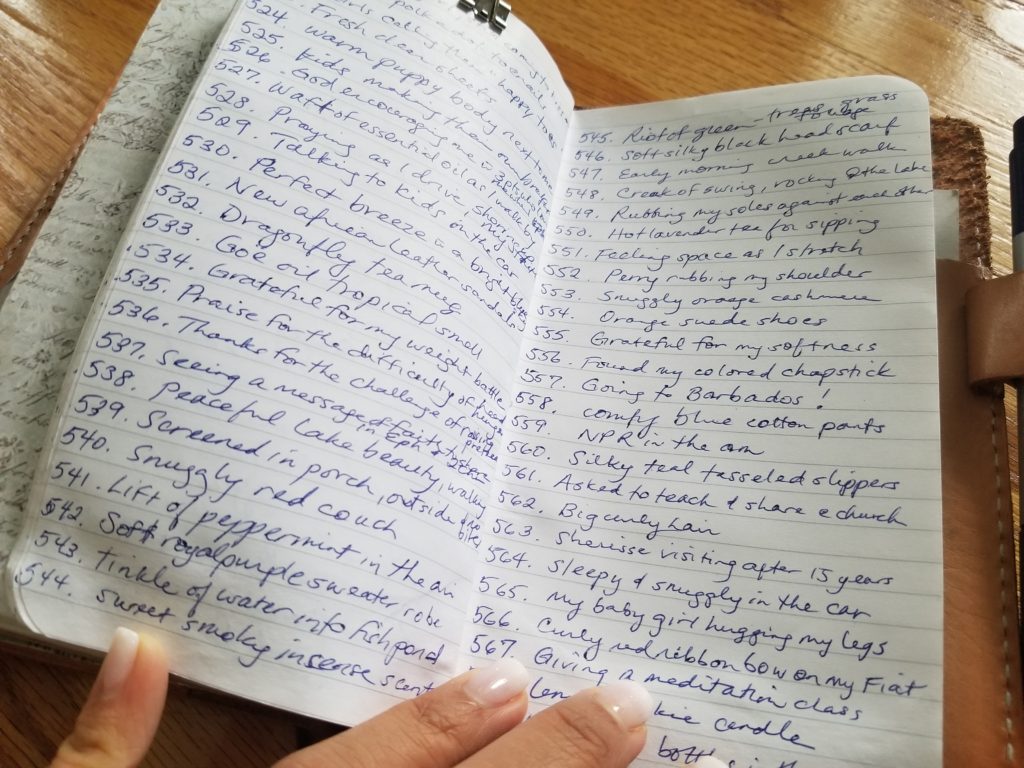 Fresh clean sheets, happy toes
524. warm puppy body next to me
525. Kids making their own breakfast
526. God encouraging me in
527. Waft of essential oil as I walk by
528. Praying as I drive
529. Talking to kids on the car
530. Perfect breeze on a bright blue
531. New african leather sandals
532. Dragonfly tea mug
533. Goe oil tropical smell
534. Grateful for my weight battle
535. Praise for the difficulty of
536. Thanks for the challenge of raising preteens
537. Seeing a message of in Eph
538. Peaceful lake beauty, walking
539. Screened in porch, outside
540. Snuggly red couch
541. Lift of peppermint in the air
542. Soft royal purple sweater robe
543. Tinkle of water into fishpond
544. Sweet smoky insense scent
545. Riot of green - trees grass
546. Soft silky black head scarf
547. Early morning creek walk
548. Creak of swing, rocking @ the lake
549. Rubbing my soles against each other
550. Hot lavender tea for sipping
551. Feeling space as I stretch
552. Perry rubbing my shoulder
553. Snuggly orange cashmere
554. Orange suede shoes
555. Grateful for my softness
556. Found my colored chapstick
557. Going to Barbados!
558. comfy blue cotton pants
559. NPR in the am
560. Silky teal tasseled slippers
561. Asked to teach & share @ church
562. Big curly hair
563. Sherisse visiting after 15 years
564. Sleepy & snuggly in the car
565. My baby girl hugging my legs
566. Curly red ribbon bow on my Fiat
567. Giving a meditation class
candle